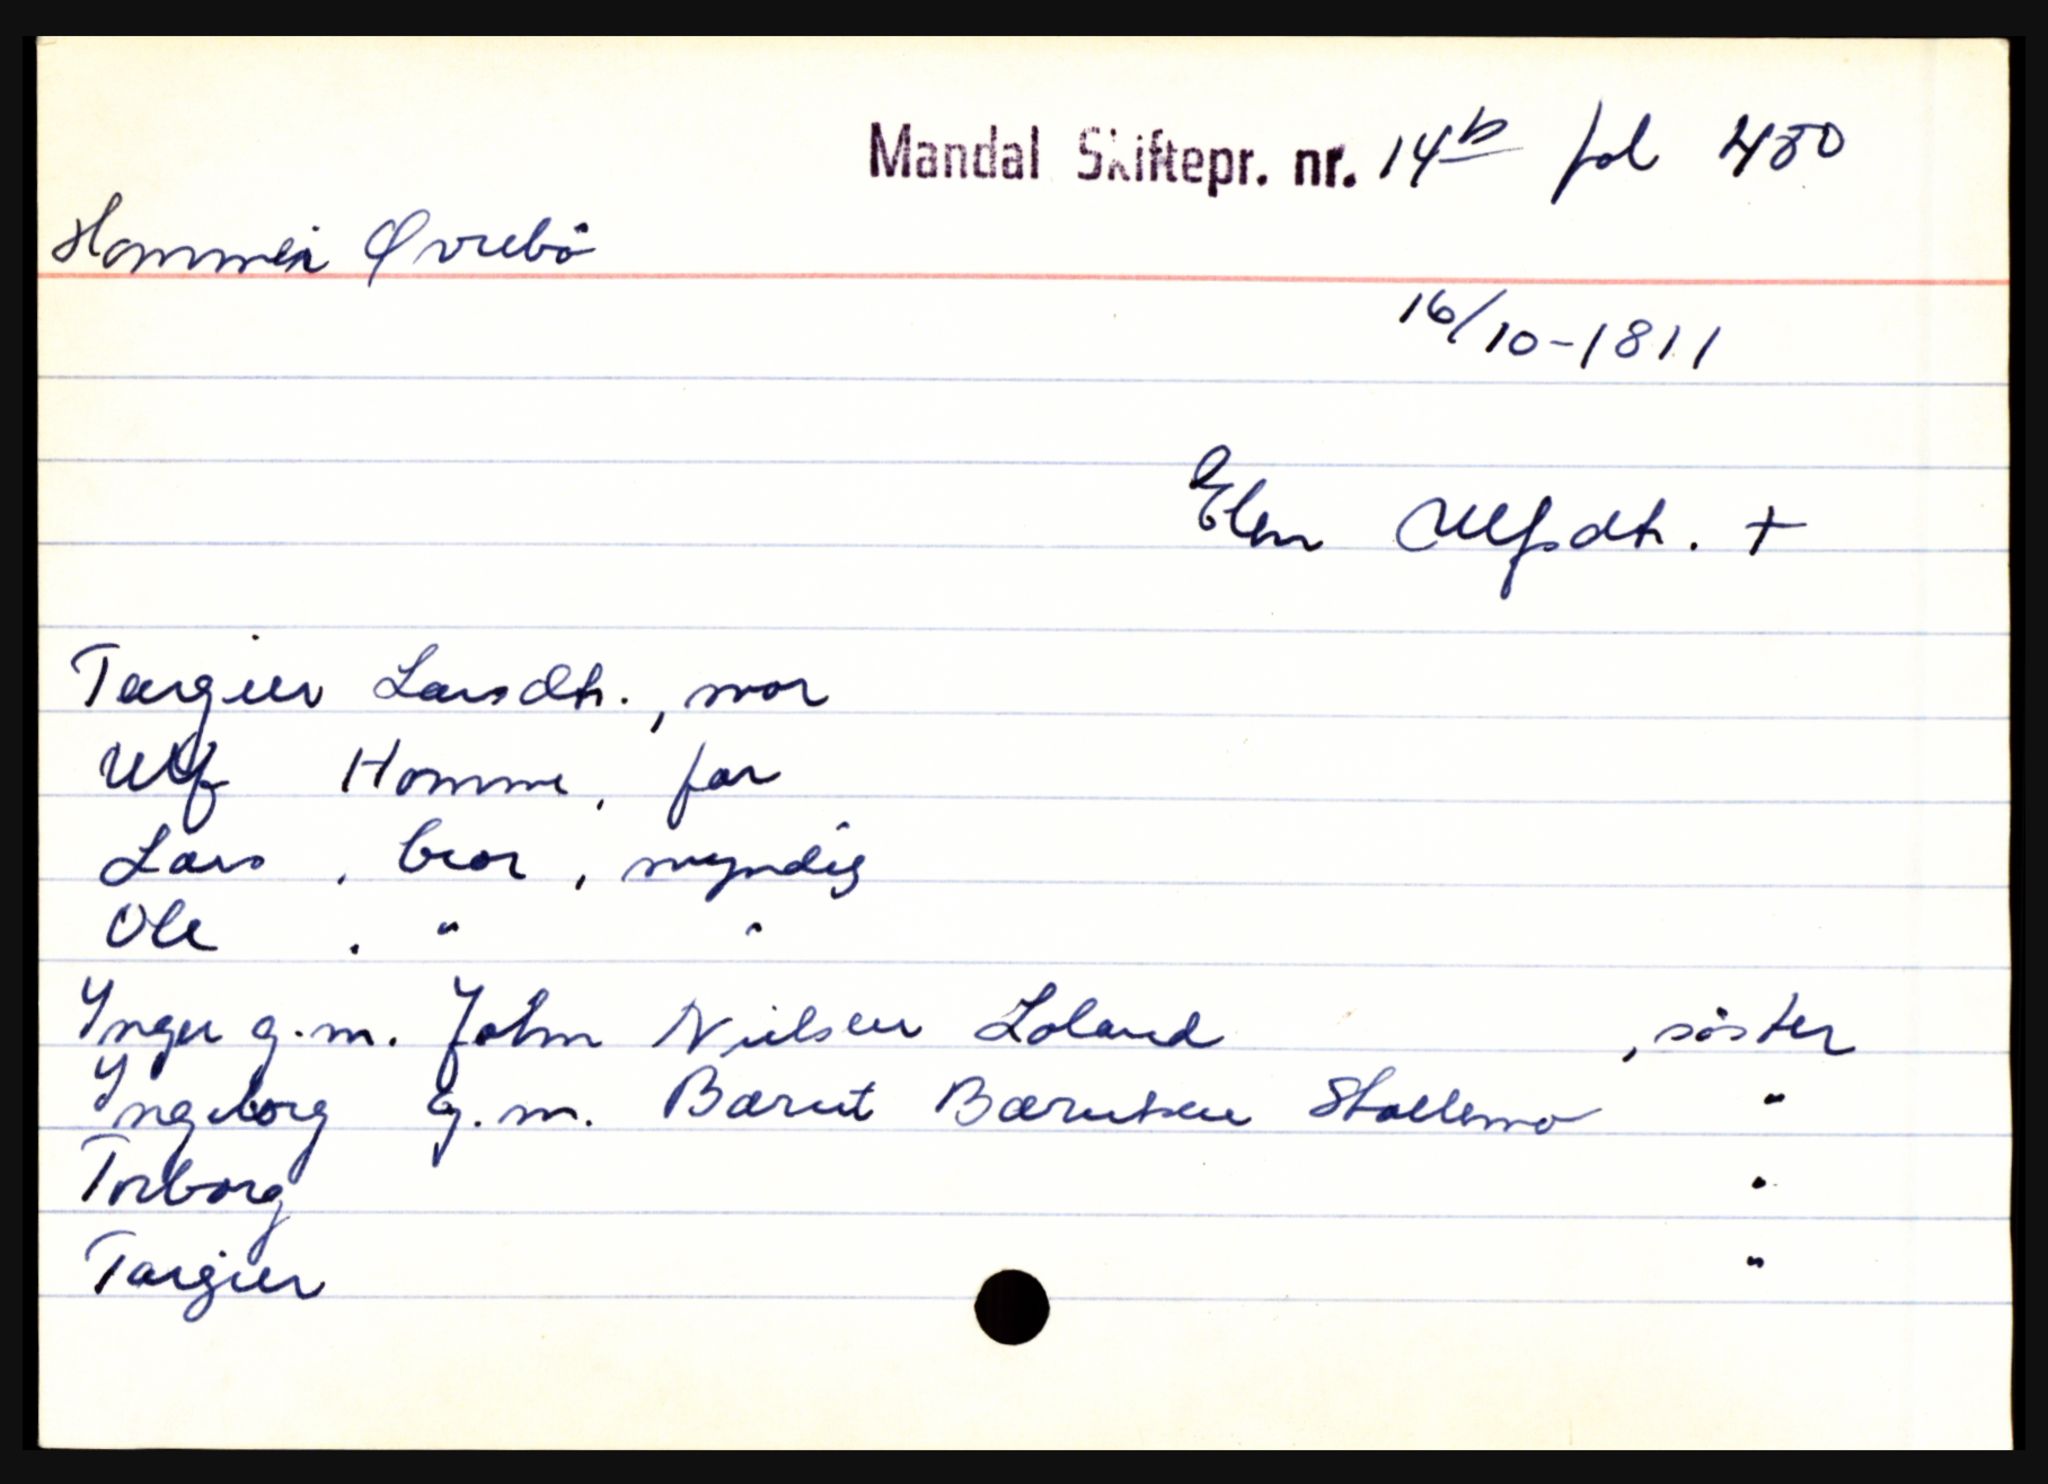 Mandal Skiftepr. nr. 14b fol 480
Hommen Øvrebö
16/10-1811
Elen Ulfsdtr. +
Targier Larsdtr., mor
Ulf Homme, far
Lars, bror, myndig
Ole, " "
Inger g.m. John Nielsen Loland, söster
Ingeborg g.m. Bærut Bærutsen Stallemo "
Torborg "
Targier "